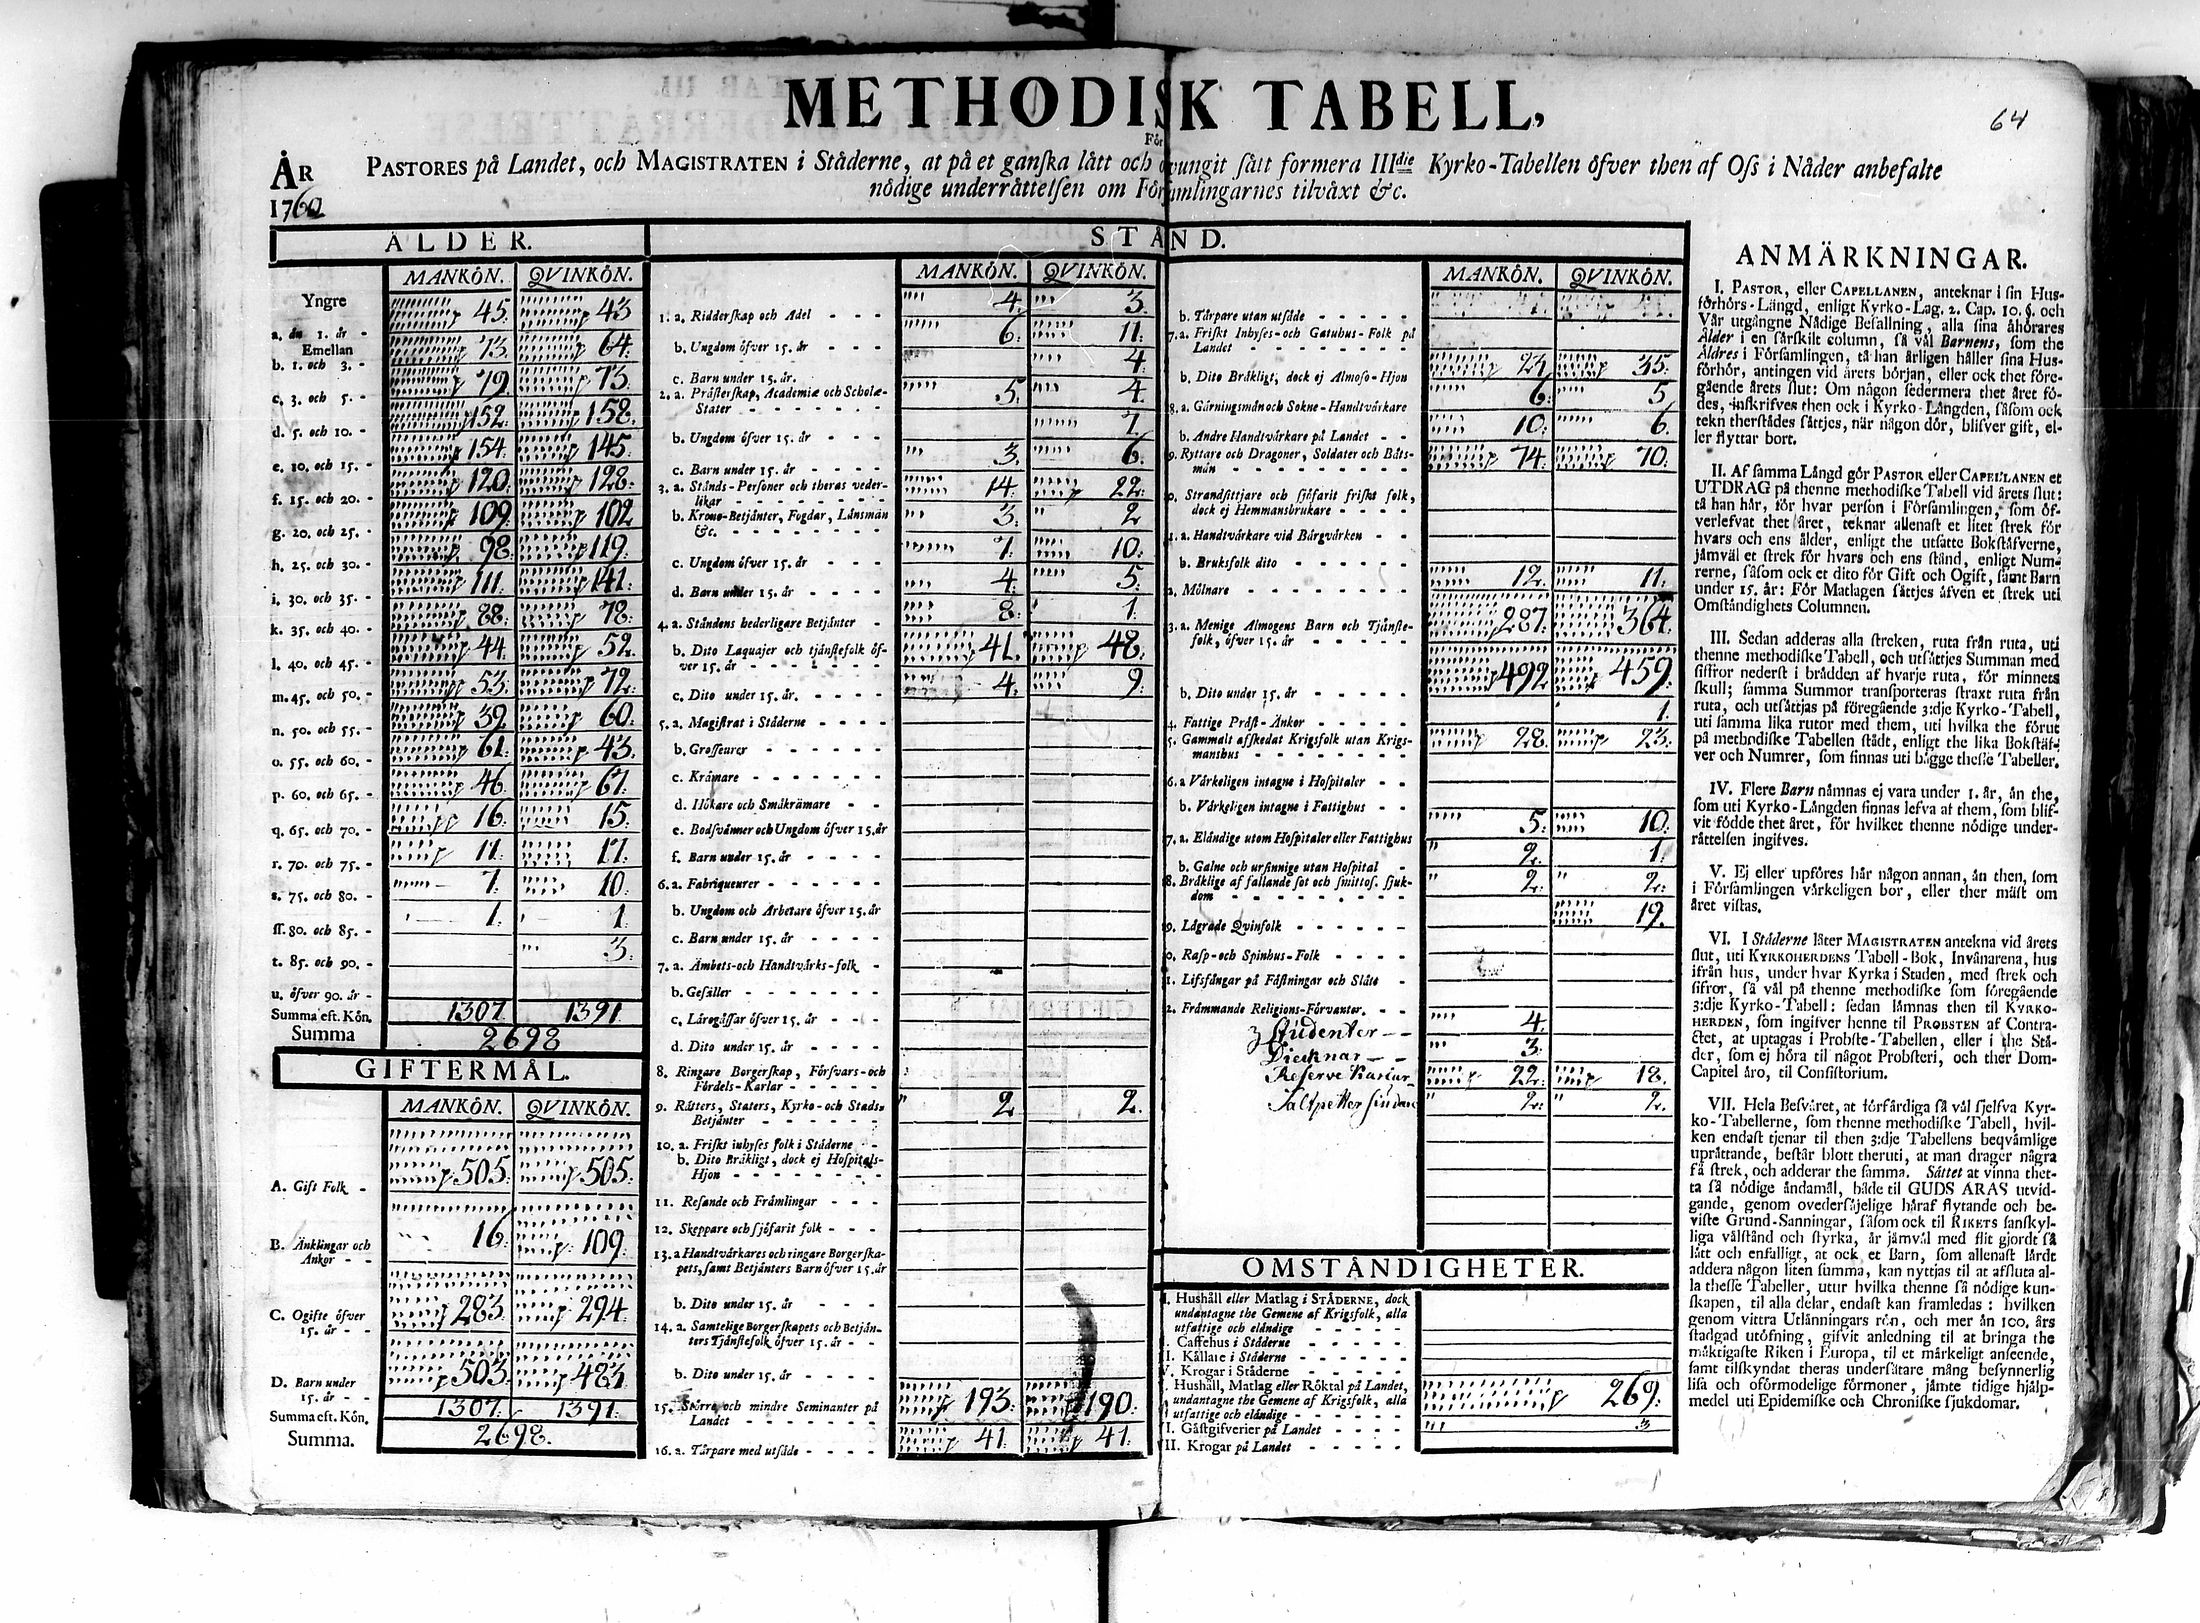 METHODISK TABELL,
64
För
ÅR PASTORES på Landet, och MAGISTRATEN i Städerne, at på et ganska lätt och otvungit sätt formera IIIdie Kyrko-Tabellen öfver then af Oss i Nåder anbefalte
1760 nödige underrättelsen om Församlingarnes tilväxt &c.
ÅLDER.
MANKÖN. QVINKÖN.
Yngre
a. än 1. år - 45. 43
Emellan
b. 1. och 3. - 73. 64.
c. 3. och 5. - 79. 73.
d. 5. och 10. - 152. 158.
e. 10. och 15. - 154. 145.
f. 15. och 20. - 120. 128.
g. 20. och 25. - 109. 102
h. 25. och 30. - 98. 119.
i. 30. och 35. - 111. 141.
k. 35. och 40. - 88. 78.
l. 40. och 45. - 44. 52.
m. 45. och 50. - 53. 72.
n. 50. och 55. - 39. 60.
o. 55. och 60. - 61. 43.
p. 60. och 65. - 46. 67.
q. 65. och 70. - 16. 15.
r. 70. och 75. - 11. 17.
s. 75. och 80. - 7. 10.
ss. 80. och 85. - 1. 1
t. 85. och 90. - 3.
u. öfver 90. år -
Summa eft. Kön. 1307 1391
Summa 2698
GIFTERMÅL.
MANKÖN. QVINKÖN.
A. Gift Folk - 505. 505.
B. Änklingar och
Änkor - - 16. 109.
C. Ogifte öfver
15. år - - 283 294.
D. Barn under
15. år - - 503. 483
Summa eft. Kön. 1307. 1391.
Summa. 2698.
STÅND.
MANKÖN. QVINKÖN.
1. a. Ridderskap och Adel - - - 4. 3.
b. Ungdom öfver 15. år - - - 6. 11.
c. Barn under 15. år. 4.
2. a. Prästerskap, Academiæ och Scholæ-
Stater - - - - - - 5. 4.
b. Ungdom öfver 15. år - - - 7
c. Barn under 15. år - - - - 3. 6.
3. a. Stånds-Personer och theras veder-
likar - - - - - - - 14. 22.
b. Krono-Betjänter, Fogdar, Länsmän
&c. - - - - - - - - 3. 2
c. Ungdom öfver 15. år - - - 7. 10.
d. Barn under 15. år - - - - 4. 5.
4. a. Ståndens hederligare Betjänter - 8. 1.
b. Dito Laquajer och tjänstefolk öf-
ver 15. år - - - - - - 41. 48.
c. Dito under 15. år. - - - - 4. 9.
5. a. Magistrat i Städerne - - - -
b. Grosseurer - - - - - -
c. Krämare - - - - - - -
d. Hökare och Småkrämare - -
e. Bodsvänner och Ungdom öfver 15. år
f. Barn under 15. år - - - -
6. a. Fabriqueurer - - - - - -
b. Ungdom och Arbetare öfver 15. år
c. Barn under 15. år - - - -
7. a. Ämbets-och Handtvärks-folk -
b. Gesäller - - - - - - -
c. Lärogåssar öfver 15. år - - -
d. Dito under 15. år - - - -
8. Ringare Borgerskap, Försvars-och
Fördels-Karlar - - - - -
9. Rätters, Staters, Kyrko-och Stads-
Betjänter - - - - - - 2 2.
10. a. Friskt inhyses folk i Städerne - -
b. Dito Bräkligt, dock ej Hospitals-
Hjon - - - - - - - -
11. Resande och Främlingar - - -
12. Skeppare och sjöfarit folk - - -
13. a Handtvärkares och ringare Borgerska-
pets, samt Betjänters Barn öfver 15. år
b. Dito under 15. år - - - -
14. a. Samtelige Borgerskapets och Betjän-
ters Tjänstefolk öfver 15. år - -
b. Dito under 15. år - - - -
15. Större och mindre Seminanter på
Landet - - - - - - - 193. 190.
16. a. Torpare med utsäde - - - - 41. 41.
MANKÖN. QVINKÖN.
b. Torpare utan utsäde - - - - -
7. a. Friskt Inhyses-och Gatuhus-Folk på
Landet - - - - - - - -
b. Dito Bräkligt, dock ej Almoso-Hjon 35.
8. a. Gärningsmän och Sokne-Handtvärkare 6. 5
b. Andre Handtvärkare på Landet - - 10. 6.
9. Ryttare och Dragoner, Soldater och Båts-
män - - - - - - - - 74. 70.
0. Strandsittjare och sjöfarit friskt folk,
dock ej Hemmansbrukare - - - -
1. a. Handtvärkare vid Bärgvärken - -
b. Bruksfolk dito - - - - - -
2. Mölnare - - - - - - - 12. 11.
3. a. Menige Almogens Barn och Tjänste-
folk, öfver 15. år - - - - - 287. 364.
b. Dito under 15. år - - - - - 492 459.
4. Fattige Präst-Änkor - - - - - 1.
5. Gammalt afskedat Krigsfolk utan Krigs-
manshus - - - - - - - 28. 23.
6. a Värkeligen intagne i Hospitaler - -
b. Värkeligen intagne i Fattighus - -
7. a. Eländige utom Hospitaler eller Fattighus 5. 10.
b. Galne och ursinnige utan Hospital - 2. 1.
8. Bräklige af fallande sot och smittos. sjuk-
dom - - - - - - - - 2. 2.
9. Lägrade Qvinfolk - - - - - - 19.
0. Rasp-och Spinhus-Folk - - - -
1. Lifsfångar på Fästningar och Slått -
2. Främmande Religions-Förvanter. - -
Studenter - - 4.
Dieknar - - 3.
Reserve Karlar 22. 18.
Saltpetter siudare 2. 2.
OMSTÄNDIGHETER.
I. Hushåll eller Matlag i STÄDERNE, dock
undantagne the Gemene af Krigsfolk, alla
utfattige och eländige - - - - -
Caffehus i Städerne - - - - -
I. Källare i Städerne - - - - -
V. Krogar i Städerne - - - - -
Hushåll, Matlag eller Röktal på Landet,
undantagne the Gemene af Krigsfolk, alla
utfattige och eländige - - - - - 269.
I. Gästgifverier på Landet - - - - 3
II. Krogar på Landet - - - - -
ANMÄRKNINGAR.
I. PASTOR, eller CAPELLANEN, anteknar i sin Hus-
förhörs-Längd, enligt Kyrko-Lag. 2. Cap. 10. §. och
Vår utgångne Nådige Befallning, alla sina åhörares
Ålder i en särskilt column, så väl Barnens, som the
Äldres i Församlingen, tå han årligen håller sina Hus-
förhör, antingen vid årets början, eller ock thet före-
gående årets slut: Om någon sedermera thet året fö-
des, inskrifves then ock i Kyrko-Längden, såsom ock
tekn therstädes sättjes, när någon dör, blifver gift, el-
ler flyttar bort.
II. Af samma Längd gör PASTOR eller CAPELLANEN et
UTDRAG på thenne methodiske Tabell vid årets slut:
tå han här, för hvar person i Församlingen, som öf-
verlefvat thet året, teknar allenast et litet strek för
hvars och ens ålder, enligt the utsatte Bokstäfverne,
jämväl et strek för hvars och ens stånd, enligt Num-
rerne, såsom ock et dito för Gift och Ogift, samt Barn
under 15. år: För Matlagen sättjes äfven et strek uti
Omständighets Columnen.
III. Sedan adderas alla streken, ruta från ruta, uti
thenne methodiske Tabell, och utsättjes Summan med
siffror nederst i brädden af hvarje ruta, för minnets
skull; samma Summor transporteras straxt ruta från
ruta, och utsättjas på föregående 3:dje Kyrko-Tabell,
uti samma lika rutor med them, uti hvilka the förut
på methodiske Tabellen städt, enligt the lika Bokstäf-
ver och Numrer, som finnas uti bägge thesse Tabeller.
IV. Flere Barn nämnas ej vara under 1. år, än the,
som uti Kyrko-Längden finnas lefva af them, som blif-
vit födde thet året, för hvilket thenne nödige under-
rättelsen ingifves.
V. Ej eller upföres här någon annan, än then, som
i Församlingen värkeligen bor, eller ther mäst om
året vistas.
VI. I Städerne låter MAGISTRATEN antekna vid årets
slut, uti KYRKOHERDENS Tabell-Bok, Invånarena, hus
ifrån hus, under hvar Kyrka i Staden, med strek och
sifror, så väl på thenne methodiske som föregående
3:dje Kyrko-Tabell: sedan lämnas then til KYRKO-
HERDEN, som ingifver henne til PROBSTEN af Contra-
ctet, at uptagas i Probste-Tabellen, eller i the Stä-
der, som ej höra til något Probsteri, och ther Dom-
Capitel äro, til Consistorium.
VII. Hela Besväret, at förfärdiga så väl sjelfva Kyr-
ko-Tabellerne, som thenne methodiske Tabell, hvil-
ken endast tjenar til then 3:dje Tabellens beqvämlige
uprättande, består blott theruti, at man drager några
få strek, och adderar the samma. Sättet at vinna thet-
ta så nödige ändamål, både til GUDS ÄRAS utvid-
gande, genom ovedersäjelige häraf flytande och be-
viste Grund-Sanningar, såsom ock til RIKETS sanskyl-
liga välstånd och styrka, är jämväl med flit gjordt så
lätt och enfalligt, at ock et Barn, som allenast lärdt
addera någon liten summa, kan nyttjas til at afsluta al-
la thesse Tabeller, utur hvilka thenne så nödige kun-
skapen, til alla delar, endast kan framledas: hvilken
genom vittra Utlänningars rön, och mer än 100. års
stadgad utöfning, gifvit anledning til at bringa the
mäktigaste Riken i Europa, til et märkeligt anseende,
samt tilskyndat theras undersåtare mång besynnerlig
lisa och oförmodelige förmoner, jämte tidige hjälp-
medel uti Epidemiske och Chroniske sjukdomar.